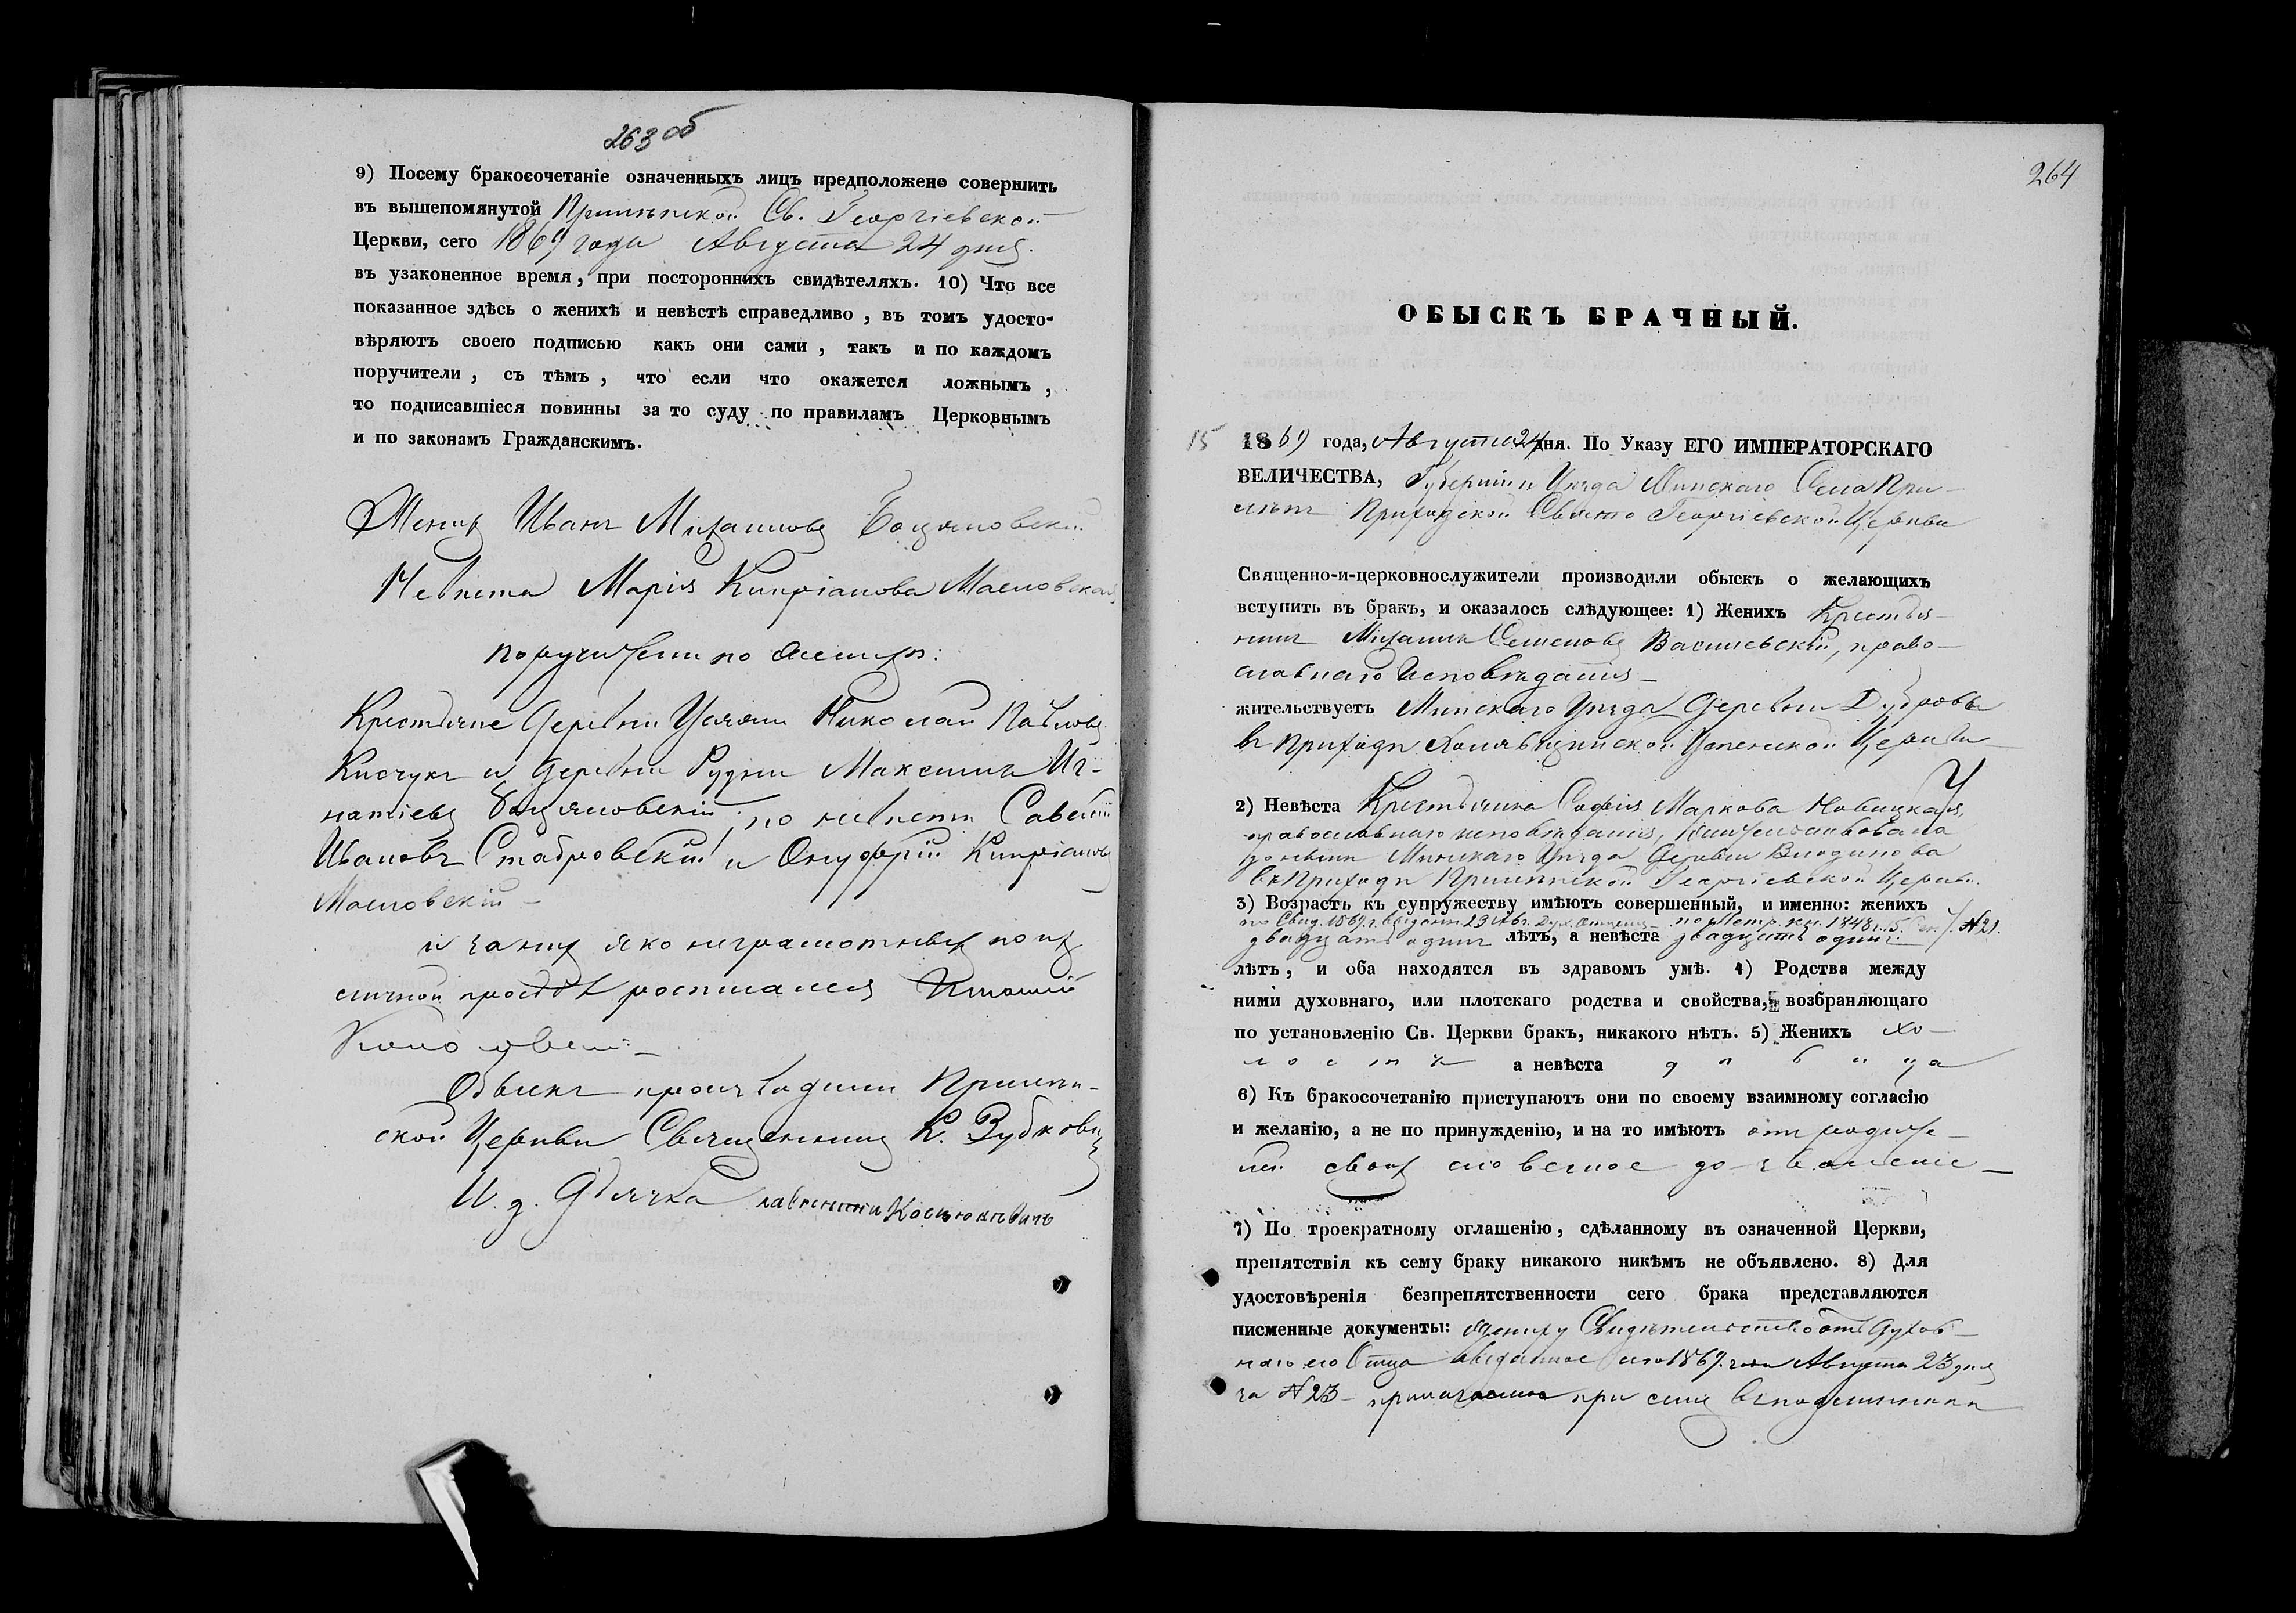 263 об
9) Посему бракосочетаніе означенныхъ лицъ предположено совершить
въ вышепомянутой Прилѣпской Св. Георгіевской
Церкви, сего 1869 года Августа 24 дня.
въ узаконенное время, при постороннихъ свидѣтеляхъ. 10) Что все
показанное здѣсь о женихѣ и невѣстѣ справедливо, въ томъ удосто-
вѣряютъ своею подписью какъ они сами, такъ и по каждомъ
поручители, съ тѣмъ, что если что окажется ложнымъ,
то подписавшіеся повинны за то суду по правиламъ Церковнымъ
и по законамъ Гражданскимъ.
Женихъ Иванъ Михаиловъ Боцяновскій
Невѣста Марія Кипріанова Масловская
поручители по женихѣ:
Крестьяне Деревни Усяжи Николай Павловъ
Кисчукъ и Деревни Рудни Максимъ Иг-
натіевъ Боцяновскій; по невѣстѣ Савелій
Ивановъ Стабровскій и Онуфрій Кипріановъ
Масловскій
и за нихъ яко неграмотныхъ по ихъ
личной прозьбѣ росписался
Обыскъ производили Прилѣп-
ской Церкви Священникъ К. Зубковичъ
И. д. Дьячка Лаврентій Костюкевичъ
264
ОБЫСКЪ БРАЧНЫЙ.
15 1869 года, Августа 24 дня. По Указу ЕГО ИМПЕРАТОРСКАГО
ВЕЛИЧЕСТВА, Губерніи и Уѣзда Минскаго Села При-
лѣпъ Приходской Свято Георгіевской Церкви
Священно-и-церковнослужители производили обыскъ о желающихъ
вступить въ бракъ, и оказалось слѣдующее: 1) Женихъ Крестья-
нинъ Михаилъ Семеновъ Василевскій, право-
славнаго исповѣданія
жительствуетъ Минскаго Уѣзда Деревни Дубровы
въ Приходѣ Холявщинской Успенской Церкви
2) Невѣста Крестьянка Софія Маркова Новицкая,
православнаго исповѣданія, жительствовала
донынѣ Минскаго Уѣзда Деревни
въ Приходѣ Прилѣпской Георгіевской Церкви.
3) Возрастъ къ супружеству имѣютъ совершенный, и именно: женихъ
по Свид. 1869 г. выдан. 23 Авг. Дух. Отцемъ по Метр. кн. 1848 г. № 21.
двадцать одинъ лѣтъ, а невѣста двадцать одинъ
лѣтъ, и оба находятся въ здравомъ умѣ. 4) Родства между
ними духовнаго, или плотскаго родства и свойства, возбраняющаго
по установленію Св. Церкви бракъ, никакого нѣтъ. 5) Женихъ хо-
лостъ а невѣста дѣвица
6) Къ бракосочетанію приступаютъ они по своему взаимному согласію
и желанію, а не по принужденію, и на то имѣютъ отъ родите-
лей своихъ словесное дозволеніе
7) По троекратному оглашенію, сдѣланному въ означенной Церкви,
препятствія къ сему браку никакого никѣмъ не объявлено. 8) Для
удостовѣренія безпрепятственности сего брака представляются
писменные документы: жениху Свидѣтельство отъ Духов-
наго его Отца выданное сего 1869 года Августа 23 дня
за № 23 прилагаемое при семъ въ подлинникѣ